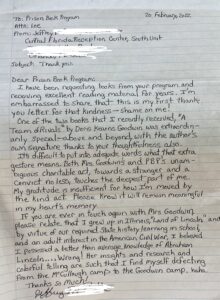 To: Prison Book Program 20 February, 2022
Attn: Lee
From: Jeffrey
Central Florida Reception Center, South Unit
Orlando, FL
Subject: Thank you
Dear Prison Book Program:
I have been requesting books from your program and
receiving excellent reading material for years. I'm
embarrassed to share that this is my first thank
you letter for that kindness—shame on me.
One of the two books that I recently received, "A
Team of Rivals" by Doris Kearns Goodwin was extraordin-
arily special—above and beyond, with the author's
own signature thanks to your thoughtfulness, also.
It's difficult to put into adequate words what that extra
gesture means. Both Mrs. Goodwin's and PBP's unam-
biguous charitable act, towards a stranger and a
convict no less, touches the deepest part of me.
My gratitude is insufficient for how I'm moved by
the kind act. Please know it will remain meaningful
in my heart's memory.
If you are ever in touch again with Mrs. Goodwin,
please relate that I grew up in Illinois, "Land of Lincoln" and
by virtue of our required State history learning in school,
and an adult interest in the American Civil War, I believed
I possessed a better than average knowledge of Abraham
Lincoln.... Wrong! Her insights and research and
colorful telling are such that I find myself defecting
from the McCullough camp to the Goodwin camp. Haha.
Thanks So Much,
Jeffrey